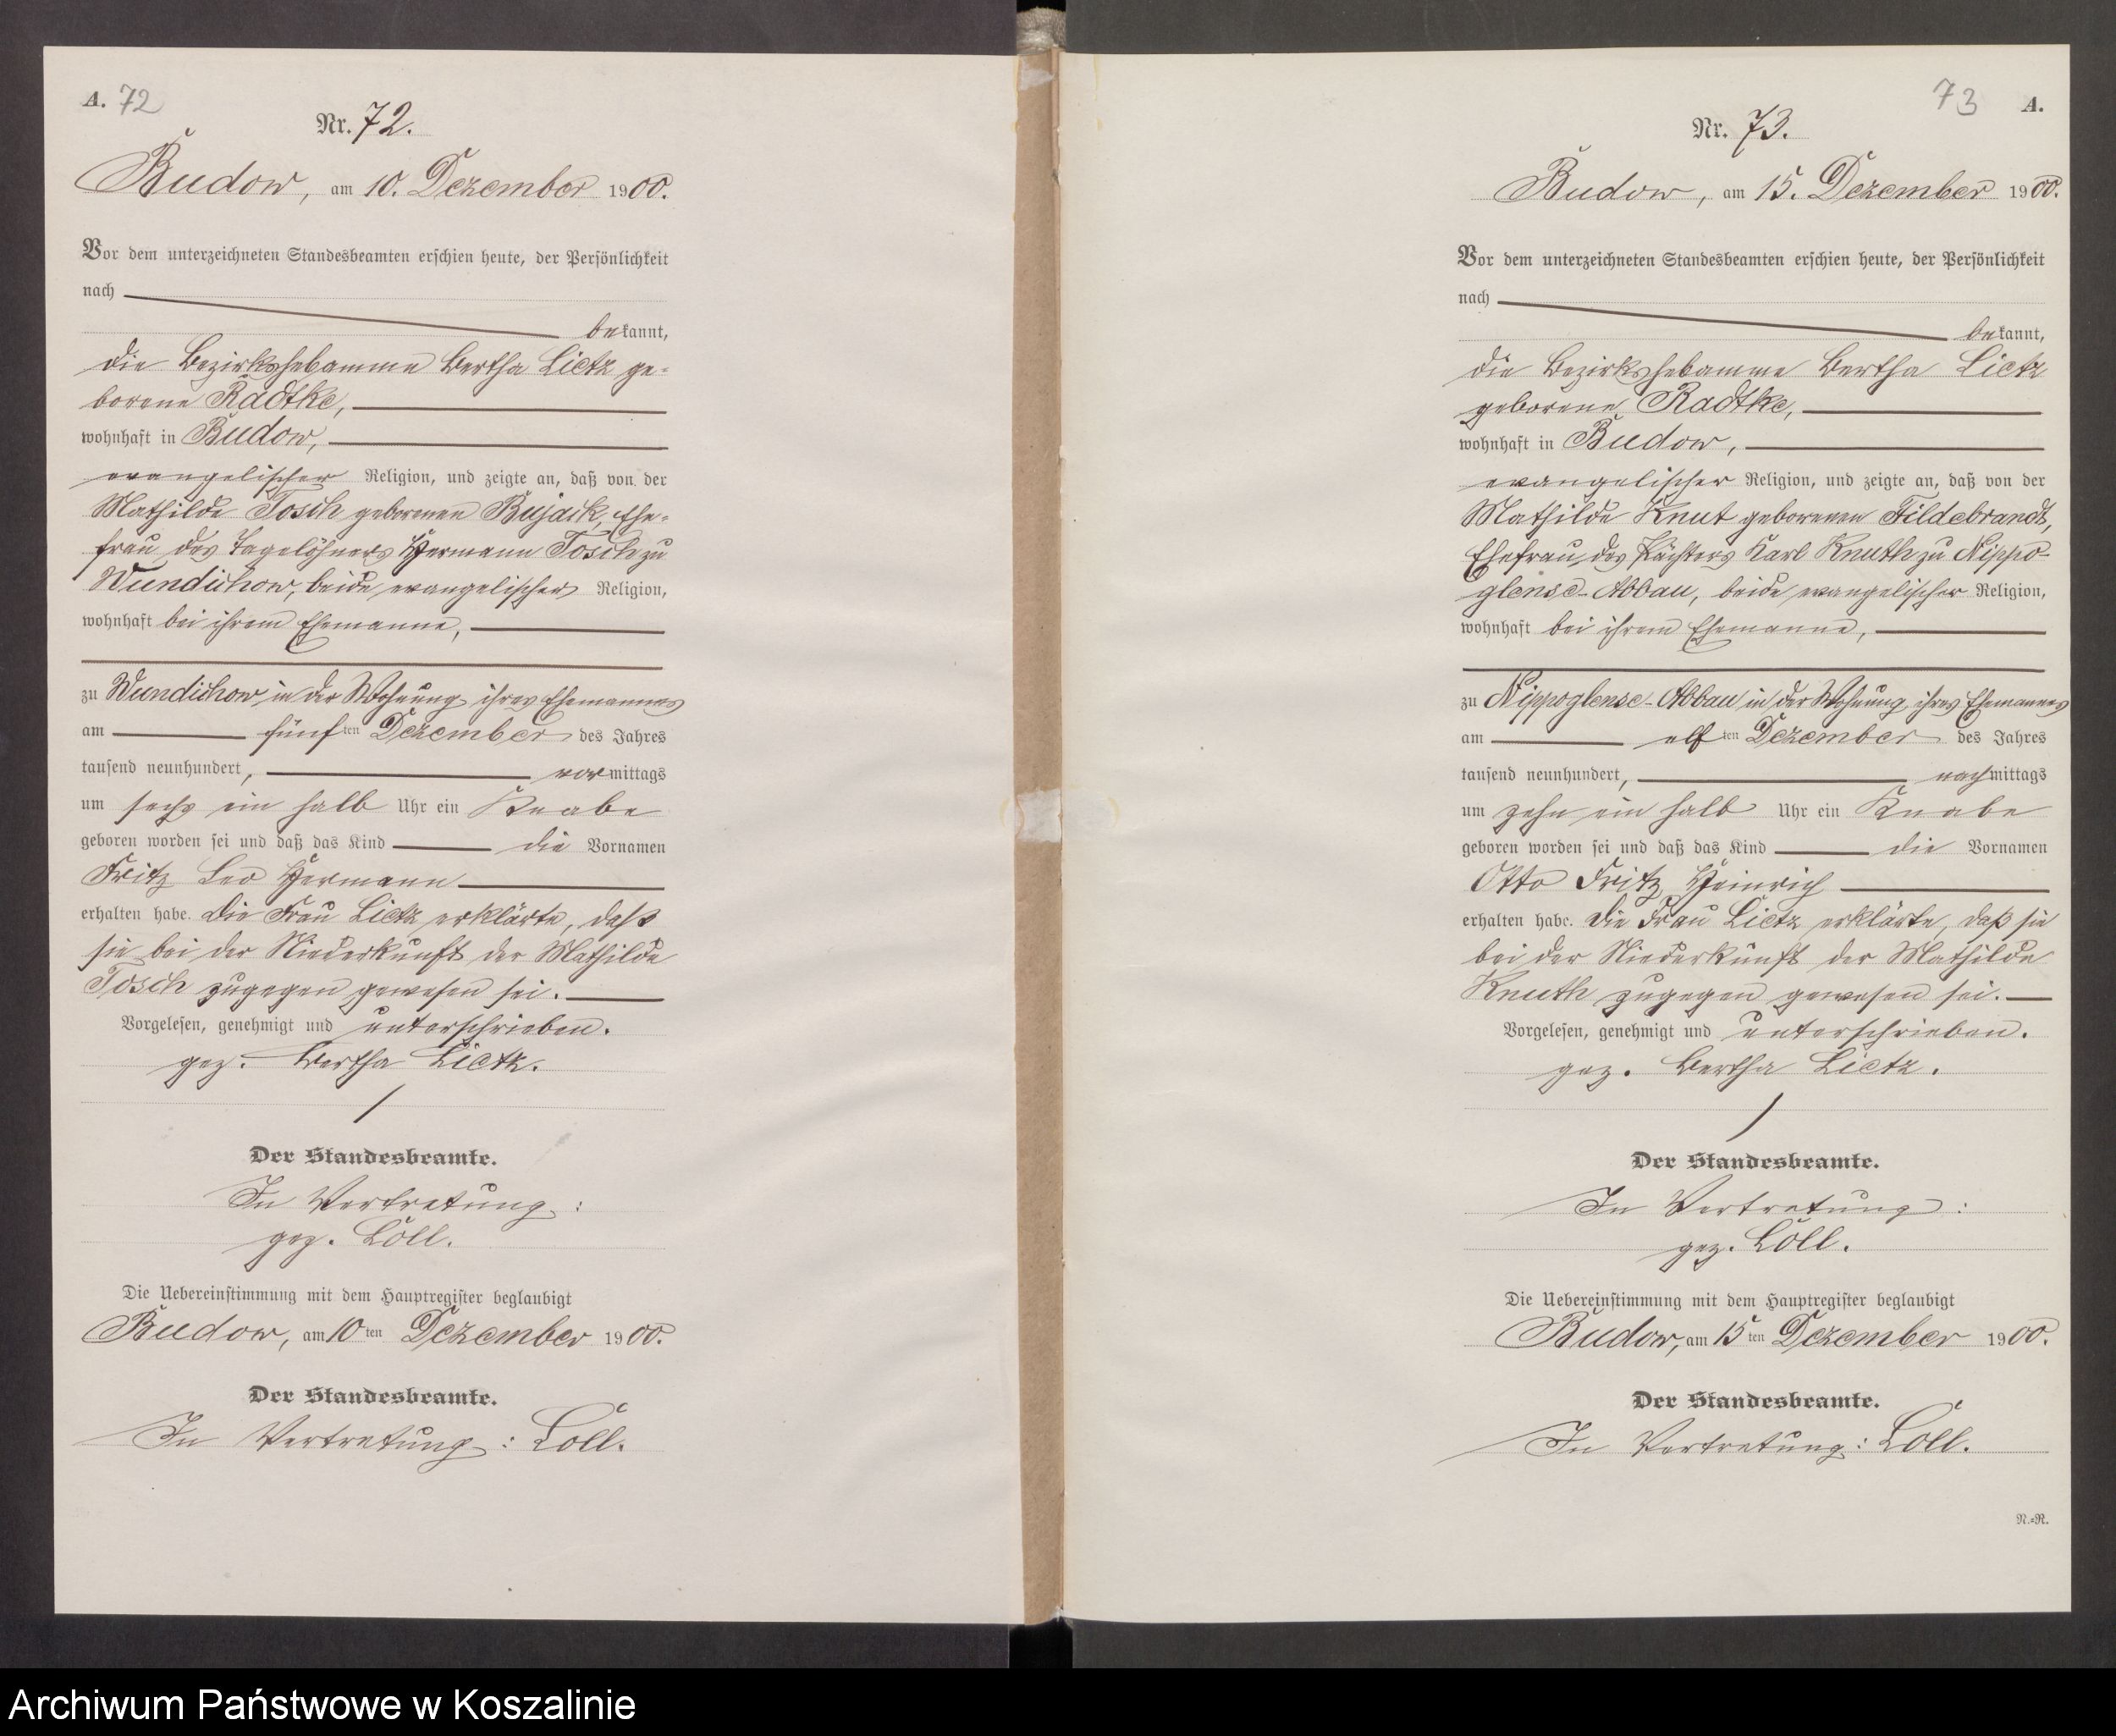 A. 72
Nr. 72.
Budow, am 10. Dezember 1900.
Vor dem unterzeichneten Standesbeamten erschien heute, der Persönlichkeit
nach
bekannt,
die Bezirkshebamme Bertha Lietz ge-
borene Radtke,
wohnhaft in Budow,
evangelischer Religion, und zeigte an, daß von der
Mathilde Tosch geborenen Bujack, Ehe-
frau des Tagelöhners Hermann Tosch zu
Wundichow, beide evangelischer Religion,
wohnhaft bei ihrem Ehemanne,
zu Wundichow in der Wohnung ihres Ehemannes
am fünften Dezember des Jahres
tausend neunhundert, vormittags
um sechs ein halb Uhr ein Knabe
geboren worden sei und daß das Kind die Vornamen
Fritz Leo Hermann
erhalten habe. Die Frau Lietz erklärte, daß
sie bei der Niederkunft der Mathilde
Tosch zugegen gewesen sei.
Vorgelesen, genehmigt und unterschrieben.
gez. Bertha Lietz.
Der Standesbeamte.
In Vertretung:
gez. Löll.
Die Uebereinstimmung mit dem Hauptregister beglaubigt
Budow, am 10ten Dezember 1900.
Der Standesbeamte.
In Vertretung: Löll.
73 A.
Nr. 73.
Budow, am 15. Dezember 1900.
Vor dem unterzeichneten Standesbeamten erschien heute, der Persönlichkeit
nach
bekannt,
die Bezirkshebamme Bertha Lietz
geborene Radtke,
wohnhaft in Budow,
evangelischer Religion, und zeigte an, daß von der
Mathilde Knut geborenen Fildebrandt,
Ehefrau des Pächters Karl Knuth zu Nippo-
glense-Abbau, beide evangelischer Religion,
wohnhaft bei ihrem Ehemanne,
zu Nippoglense-Abbau in der Wohnung ihres Ehemannes
am elften Dezember des Jahres
tausend neunhundert, nachmittags
um zehn ein halb Uhr ein Knabe
geboren worden sei und daß das Kind die Vornamen
Otto Fritz Heinrich
erhalten habe. Die Frau Lietz erklärte, daß sie
bei der Niederkunft der Mathilde
Knuth zugegen gewesen sei.
Vorgelesen, genehmigt und unterschrieben.
gez. Bertha Lietz.
Der Standesbeamte.
In Vertretung:
gez. Löll.
Die Uebereinstimmung mit dem Hauptregister beglaubigt
Budow, am 15ten Dezember 1900.
Der Standesbeamte.
In Vertretung: Löll.
N.=R.
Archiwum Państwowe w Koszalinie